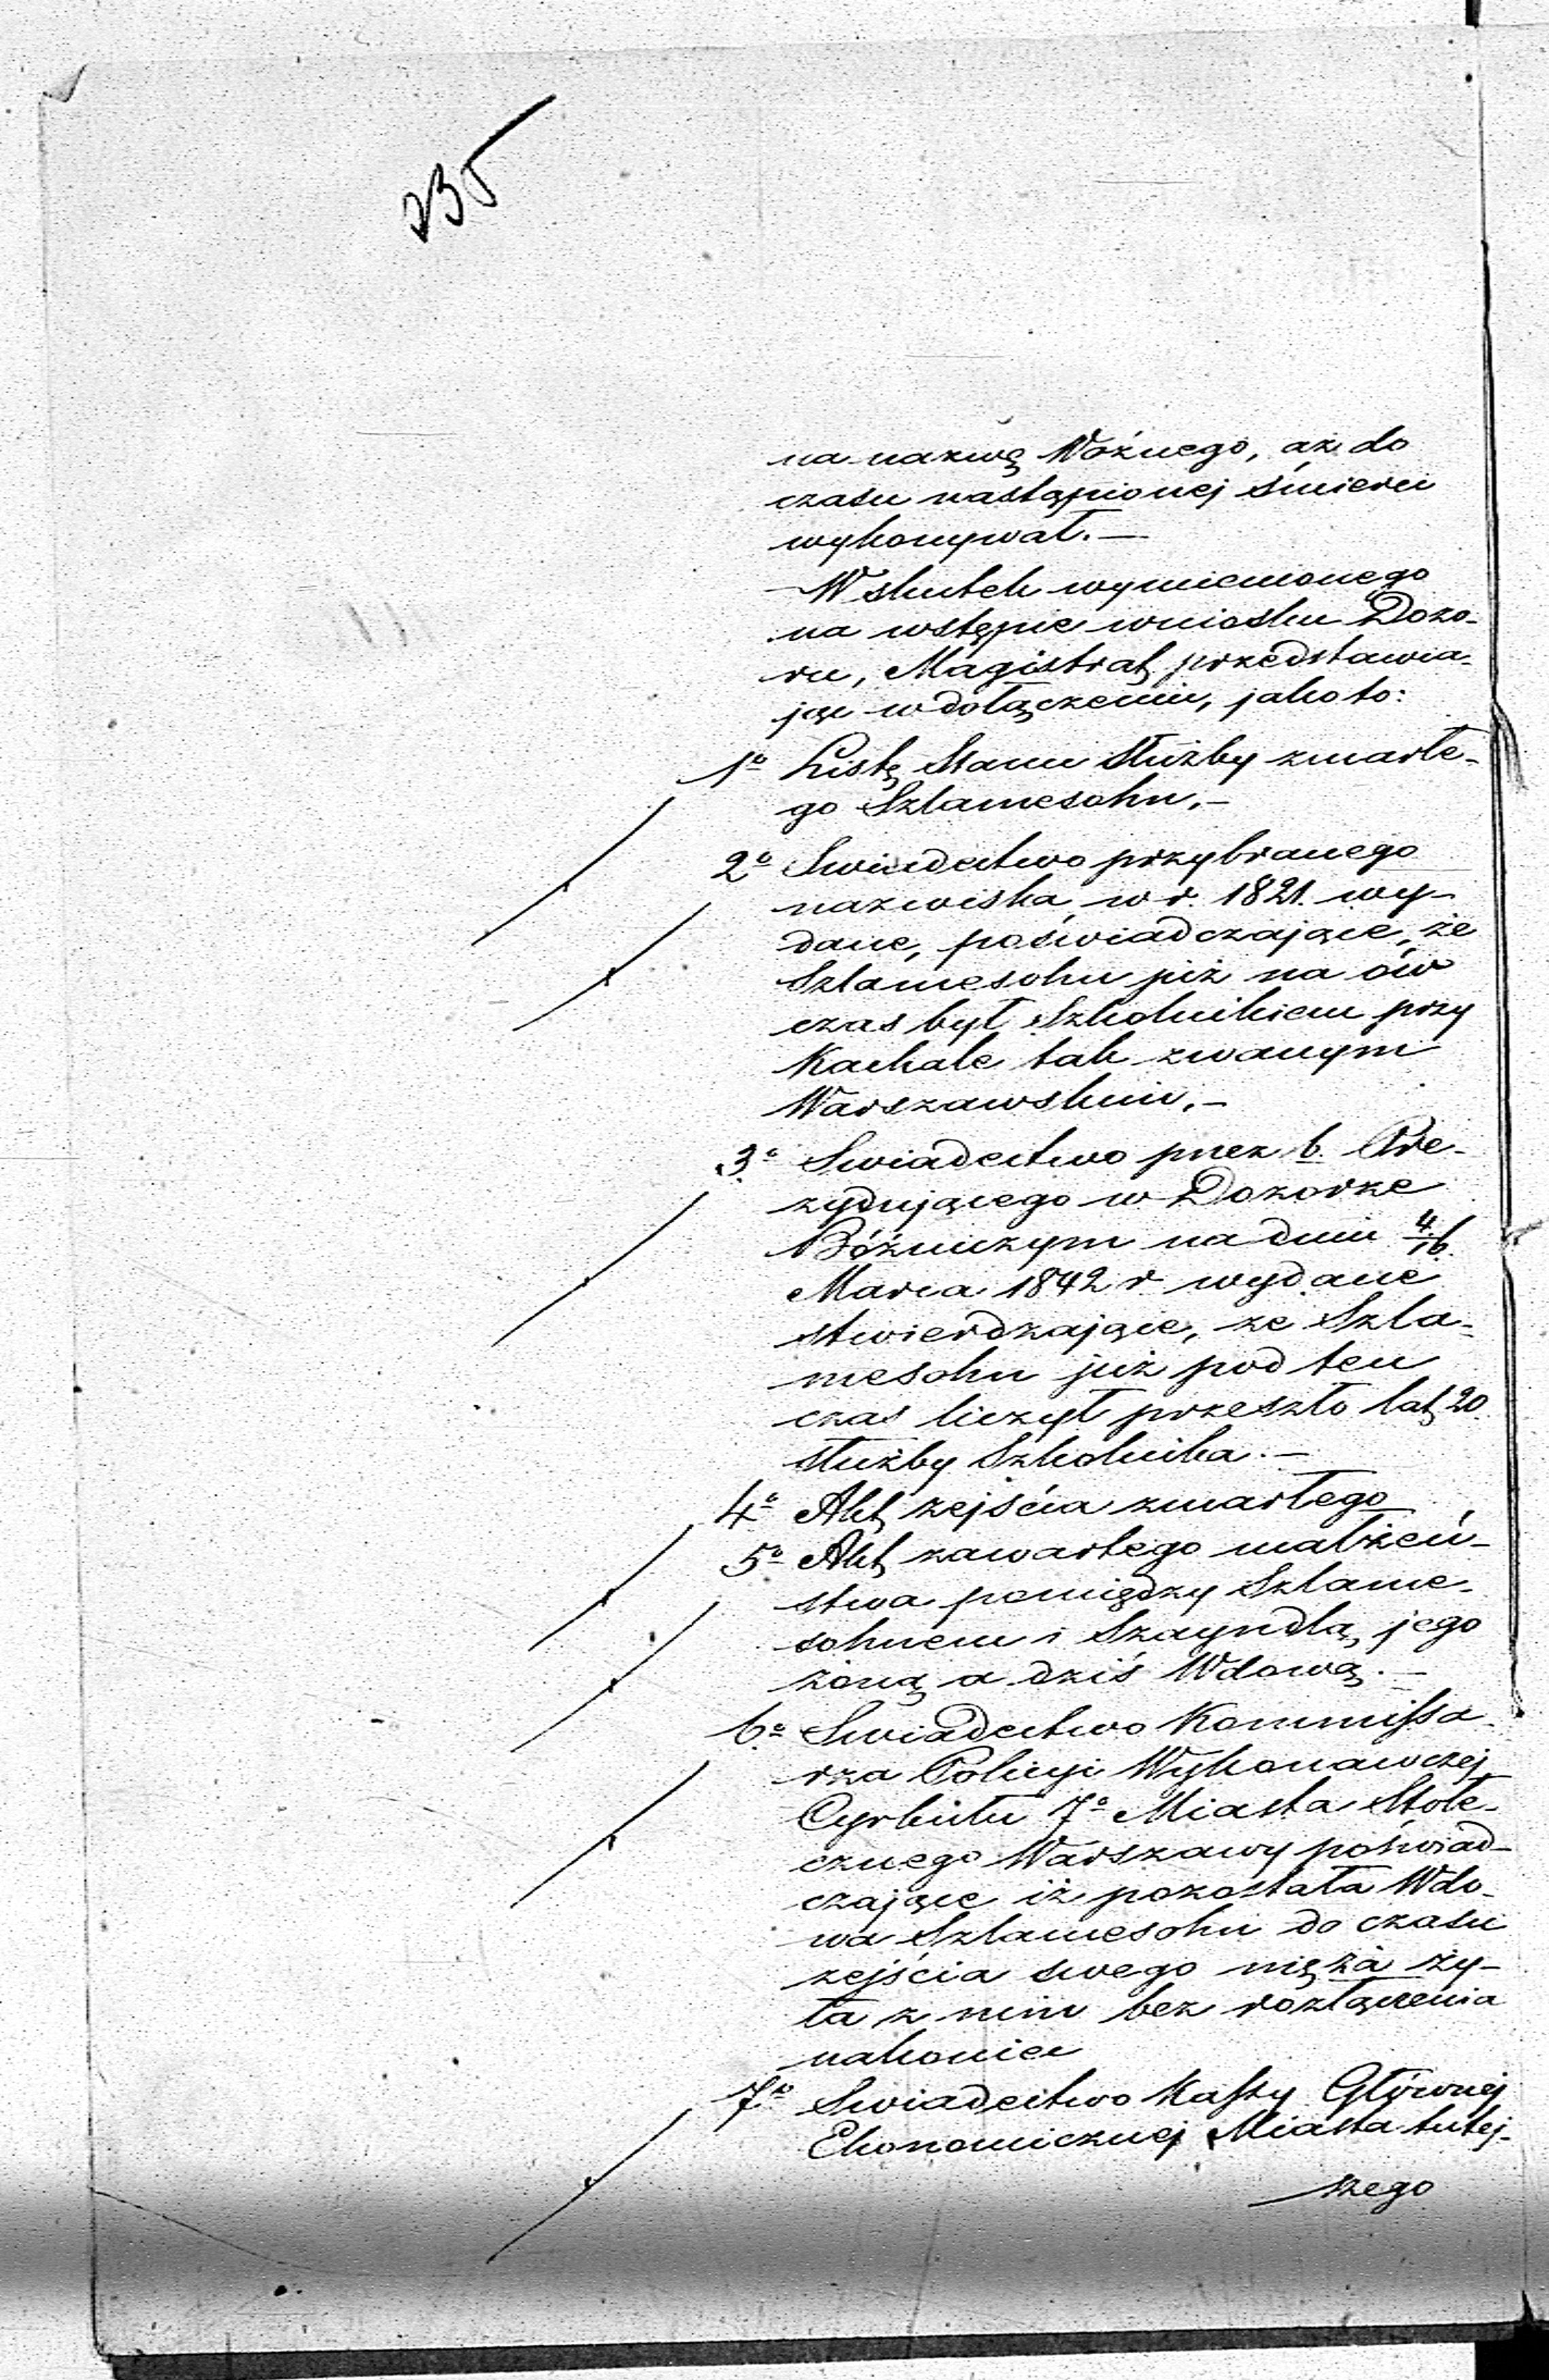 235
na nazwę Woźnego, aż do
czasu nastąpionej śmierci
wykonywał.—
W skutek wymienionego
na wstępie wniosku Dozo-
ru, Magistrat przedstawia-
jąc w dołączeniu, jako to:
1o Listę Stanu Służby zmarłe-
go Szlamesohn.—
2o Swiadectwo przybranego
nazwiska w r. 1821. wy-
dane, poświadczające, że
Szlamesohn już na ów
czas był Szkolnikiem przy
Kachale tak zwanym
Warszawskim.—
3o Swiadectwo przez b. Pre-
zydującego w Dozorze
Bóżniczym na dniu 4/16
Marca 1842 r wydane
stwierdzające, że Szla-
mesohn już pod ten
czas liczył przeszło lat 20.
służby Szkolnika.—
4o Akt zejścia zmarłego
5o Akt zawartego małżeń-
stwa pomiędzy Szlame-
sohnem i Szayndlą jego
żoną a dziś Wdową.—
6o Swiadectwo Kommissa-
rza Policyi Wykonawczej
Cyrkułu 7o Miasta Stołe-
cznego Warszawy poświad-
czające iż pozostała Wdo-
wa Szlamesohn do czasu
zejścia swego męża ży-
ła z nim bez rozłączenia
nakoniec
7o Swiadectwo Kassy Głównej
Ekonomicznej Miasta tutej-
szego